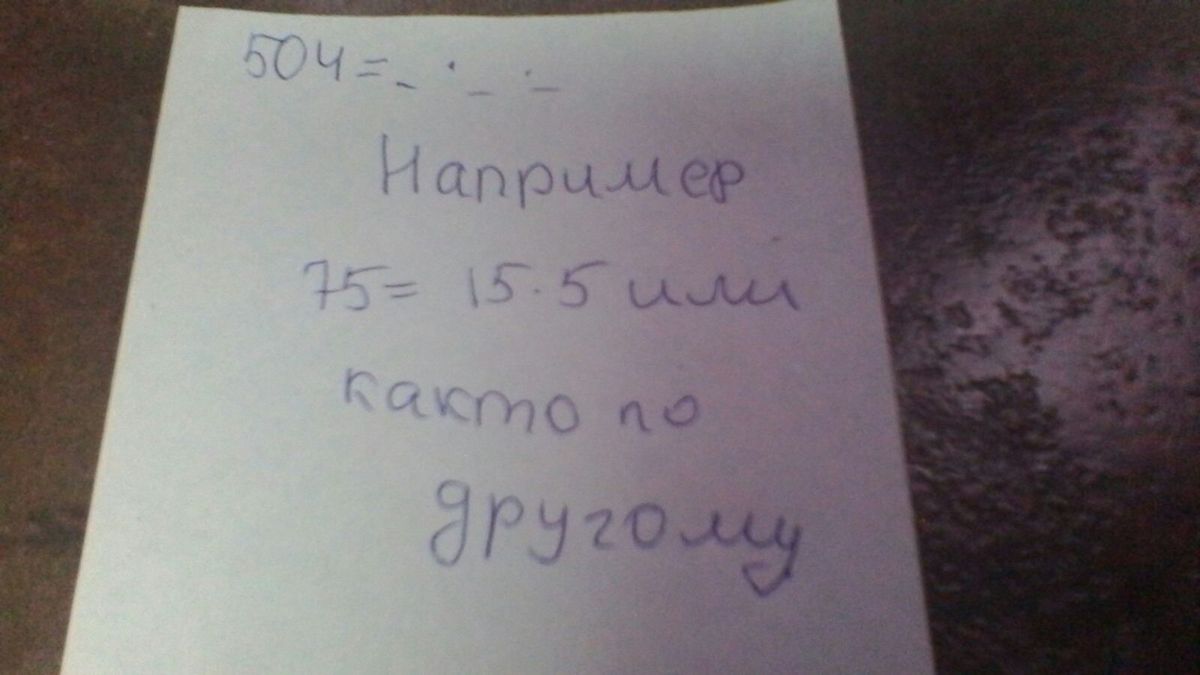 504 = _ · _ · _
Например
75 = 15 · 5 или
както по
другому